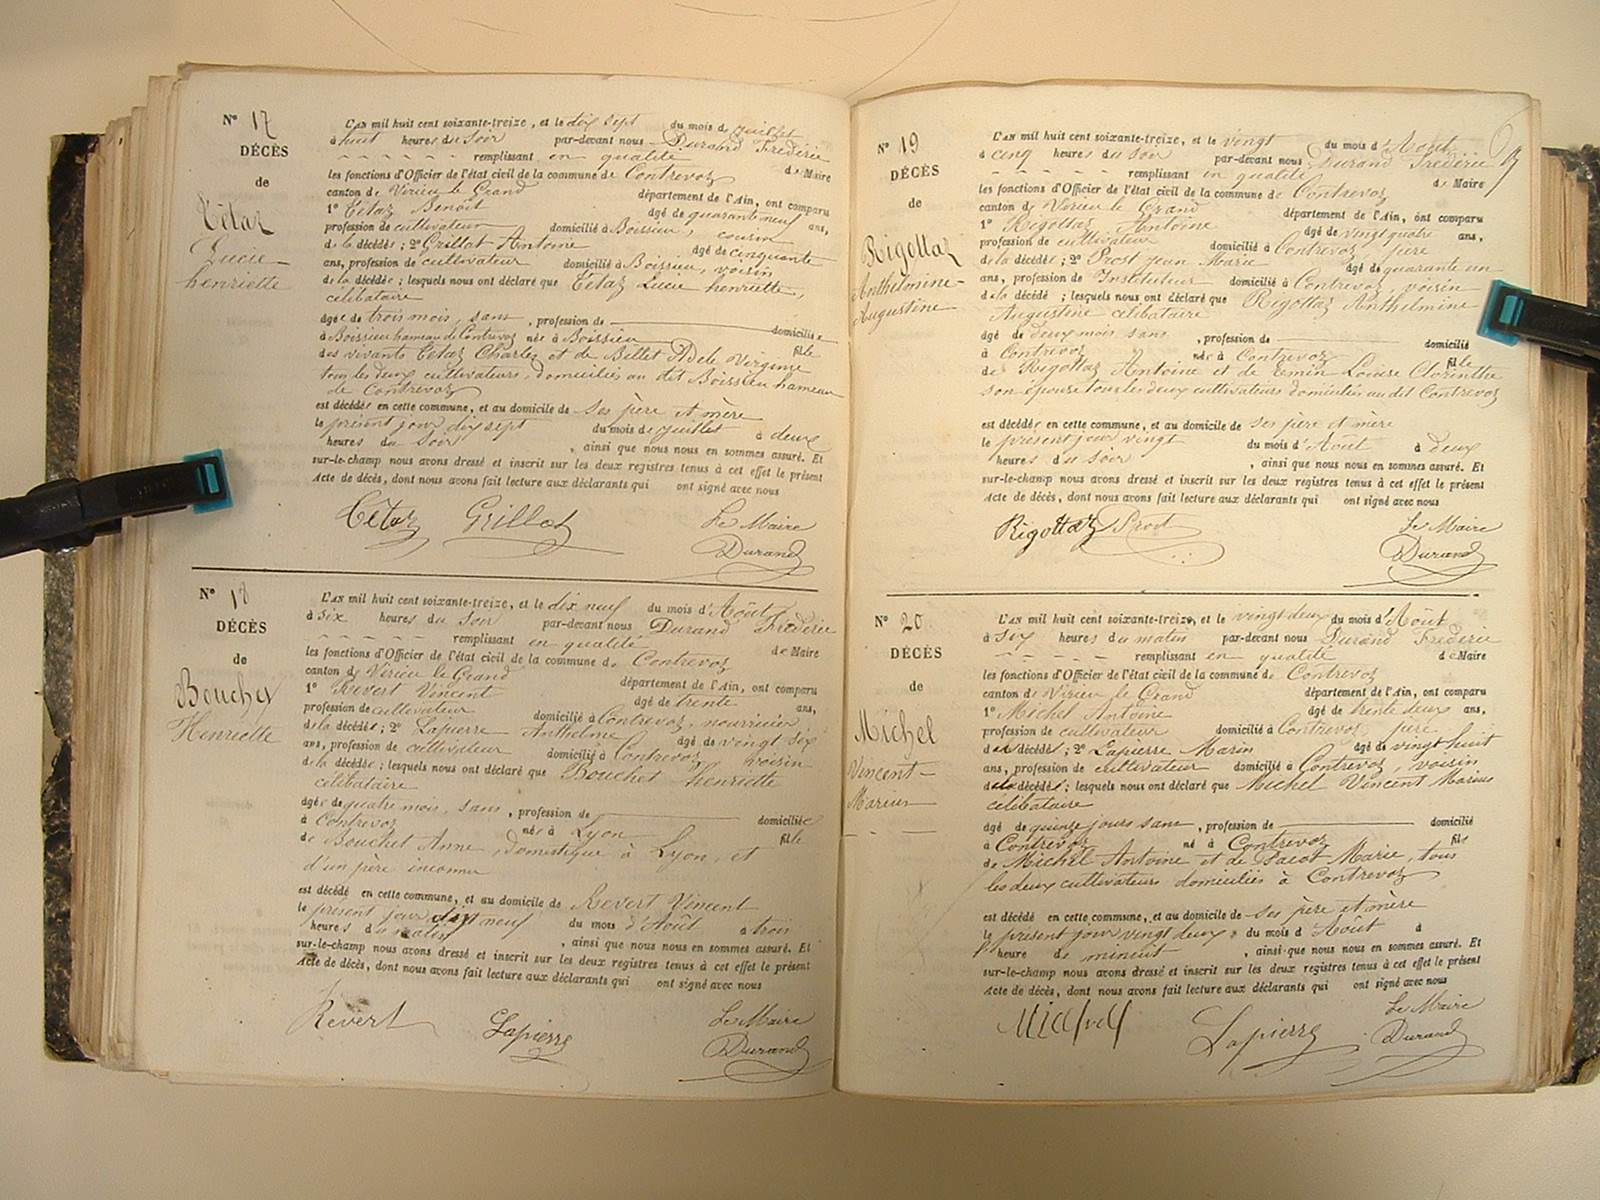 N° 17
DÉCÈS
de
Tétaz
Lucie
henriette
L'AN mil huit cent soixante-treize, et le dix sept du mois de juillet
à huit heures du soir par-devant nous Durand Frédéric
remplissant en qualité de Maire
les fonctions d'Officier de l'état civil de la commune de Contrevoz
canton de Virieu le Grand département de l'Ain, ont comparu
1° Tétaz Benoit âgé de quarante neuf ans,
profession de cultivateur domicilié à Boissieu, cousin
de la décédée ; 2° Grillot Antoine âgé de cinquante
ans, profession de cultivateur domicilié à Boissieu, voisin
de la décédée ; lesquels nous ont déclaré que Tétaz Lucie henriette,
célibataire
âgée de trois mois, sans , profession de domiciliée
à Boissieu hameau de Contrevoz née à Boissieu fille
des vivants Tétaz Charles et de Billet Adèle Virginie
tous les deux cultivateurs, domiciliés au dit Boissieu hameau
de Contrevoz
est décédée en cette commune, et au domicile de ses père et mère
le présent jour dix sept du mois de juillet à deux
heures du soir , ainsi que nous nous en sommes assuré. Et
sur-le-champ nous avons dressé et inscrit sur les deux registres tenus à cet effet le présent
Acte de décès, dont nous avons fait lecture aux déclarants qui ont signé avec nous
Tétaz Grillot Le Maire
Durand
N° 18
DÉCÈS
de
Bouchet
Henriette
L'AN mil huit cent soixante-treize, et le dix neuf du mois d'Août
à six heures du soir par-devant nous Durand Frédéric
remplissant en qualité de Maire
les fonctions d'Officier de l'état civil de la commune de Contrevoz
canton de Virieu le Grand département de l'Ain, ont comparu
1° Revert Vincent âgé de trente ans,
profession de cultivateur domicilié à Contrevoz, nourricier
de la décédée ; 2° Lapierre Anthelme âgé de vingt six
ans, profession de cultivateur domicilié à Contrevoz voisin
de la décédée ; lesquels nous ont déclaré que Bouchet henriette
célibataire
âgée de quatre mois, sans , profession de domiciliée
à Contrevoz née à Lyon fille
de Bouchet Anne, domestique à Lyon, et
d'un père inconnu
est décédé en cette commune, et au domicile de Revert Vincent
le présent jour dix neuf du mois d'Août à trois
heures du matin , ainsi que nous nous en sommes assuré. Et
sur-le-champ nous avons dressé et inscrit sur les deux registres tenus à cet effet le présent
Acte de décès, dont nous avons fait lecture aux déclarants qui ont signé avec nous
Revert Lapierre Le Maire
Durand
N° 19
DÉCÈS
de
Rigottaz
Anthelmine
Augustine
L'AN mil huit cent soixante-treize, et le vingt du mois d'Août
à cinq heures du soir par-devant nous Durand Frédéric
remplissant en qualité de Maire
les fonctions d'Officier de l'état civil de la commune de Contrevoz
canton de Virieu le Grand département de l'Ain, ont comparu
1° Rigottaz Antoine âgé de vingt quatre ans,
profession de cultivateur domicilié à Contrevoz, père
de la décédée ; 2° Prost jean Marie âgé de quarante un
ans, profession de Instituteur domicilié à Contrevoz, voisin
de la décédé ; lesquels nous ont déclaré que Rigottaz Anthelmine
Augustine célibataire
âgé de deux mois sans , profession de domicilié
à Contrevoz née à Contrevoz fille
de Rigottaz Antoine et de Louise Clorinthe
son épouse tous les deux cultivateurs domiciliés au dit Contrevoz
est décédée en cette commune, et au domicile de ses père et mère
le présent jour vingt du mois d'Août à deux
heures du soir , ainsi que nous nous en sommes assuré. Et
sur-le-champ nous avons dressé et inscrit sur les deux registres tenus à cet effet le présent
Acte de décès, dont nous avons fait lecture aux déclarants qui ont signé avec nous
Rigottaz Prost Le Maire
Durand
N° 20
DÉCÈS
de
Michel
Vincent
Marius
L'AN mil huit cent soixante-treize, et le vingt deux du mois d'Août
à six heures du matin par-devant nous Durand Frédéric
remplissant en qualité de Maire
les fonctions d'Officier de l'état civil de la commune de Contrevoz
canton de Virieu le Grand département de l'Ain, ont comparu
1° Michel Antoine âgé de trente deux ans,
profession de cultivateur domicilié à Contrevoz père
du décédé ; 2° Lapierre Marin âgé de vingt huit
ans, profession de cultivateur domicilié à Contrevoz, voisin
décédé ; lesquels nous ont déclaré que Michel Vincent Marius
célibataire
âgé de quinze jours sans , profession de domicilié
à Contrevoz né à Contrevoz fils
de Michel Antoine et de Pacot Marie, tous
les deux cultivateurs domiciliés à Contrevoz
est décédé en cette commune, et au domicile de ses père et mère
le présent jour vingt deux du mois d'Août à
heure de minuit , ainsi que nous nous en sommes assuré. Et
sur-le-champ nous avons dressé et inscrit sur les deux registres tenus à cet effet le présent
Acte de décès, dont nous avons fait lecture aux déclarants qui ont signé avec nous
Michel Lapierre Le Maire
Durand